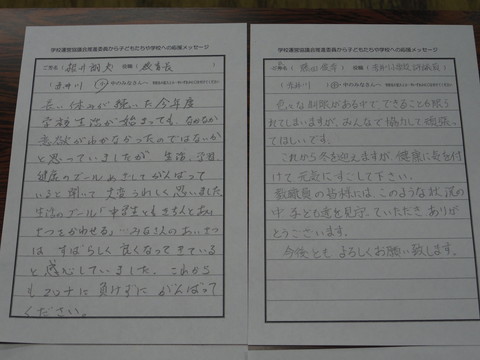 学校運営協議会推進委員から子どもたちや学校への応援メッセージ
ご芳名( 根井 朗夫 役職( 教育長 )
(赤井川 中のみなさんへ
長い休みが続いた今年度
学校生活が始まっても、なかなか
意欲がわかなかったのではないか
と思っていましたが 生活、学習
健康のゴールめざしてがんばって
いると聞いて大変うれしく思いました
生活のゴール「中学生ともきちんとあい
さつをかわせる」…みなさんのあいさつ
は、すばらしく良くなってきている
と感心していました。これから
もコロナに負けずにがんばって
ください。
学校運営協議会推進委員から子どもたちや学校への応援メッセージ
(赤井川 中のみなさんへ
色々な制限がある中で できることも限ら
れてしまいますが、みんなで協力して頑張っ
てほしいです。
これから冬を迎えますが、健康に気を付け
て元気にすごして下さい。
教職員の皆様には、このような状況の
中 子ども達を見守っていただき ありが
とうございます。
今後とも よろしくお願い致します。